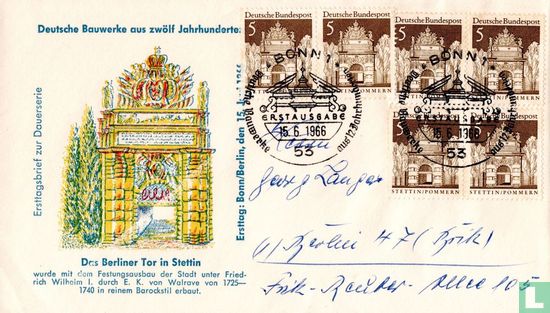 Deutsche Bauwerke aus zwölf Jahrhunderte
Ersttagsbrief zur Dauerserie
Ersttag: Bonn/Berlin, den 15.
Das Berliner Tor in Stettin
wurde mit dem Festungsausbau der Stadt unter Fried-
rich Wilhelm I. durch E. K. von Walrave von 1725—
1740 in reinem Barockstil erbaut.
5 Deutsche Bundespost
5 Deutsche Bundespost
5 Deutsche Bundespost
5
5
5
STETTIN/POMMERN
STETTIN/POMMERN
BONN 1
Deutsche Bauwerke
aus 12 Jahrhunderten
ERSTAUSGABE
15.6.1966
53
BONN 1
Deutsche Bauwerke
aus 12 Jahrhunderten
ERSTAUSGABE
15.6.1966
53
Georg
1) Berlin 47 (Britz)
Fritz-Reuter-Allee 105